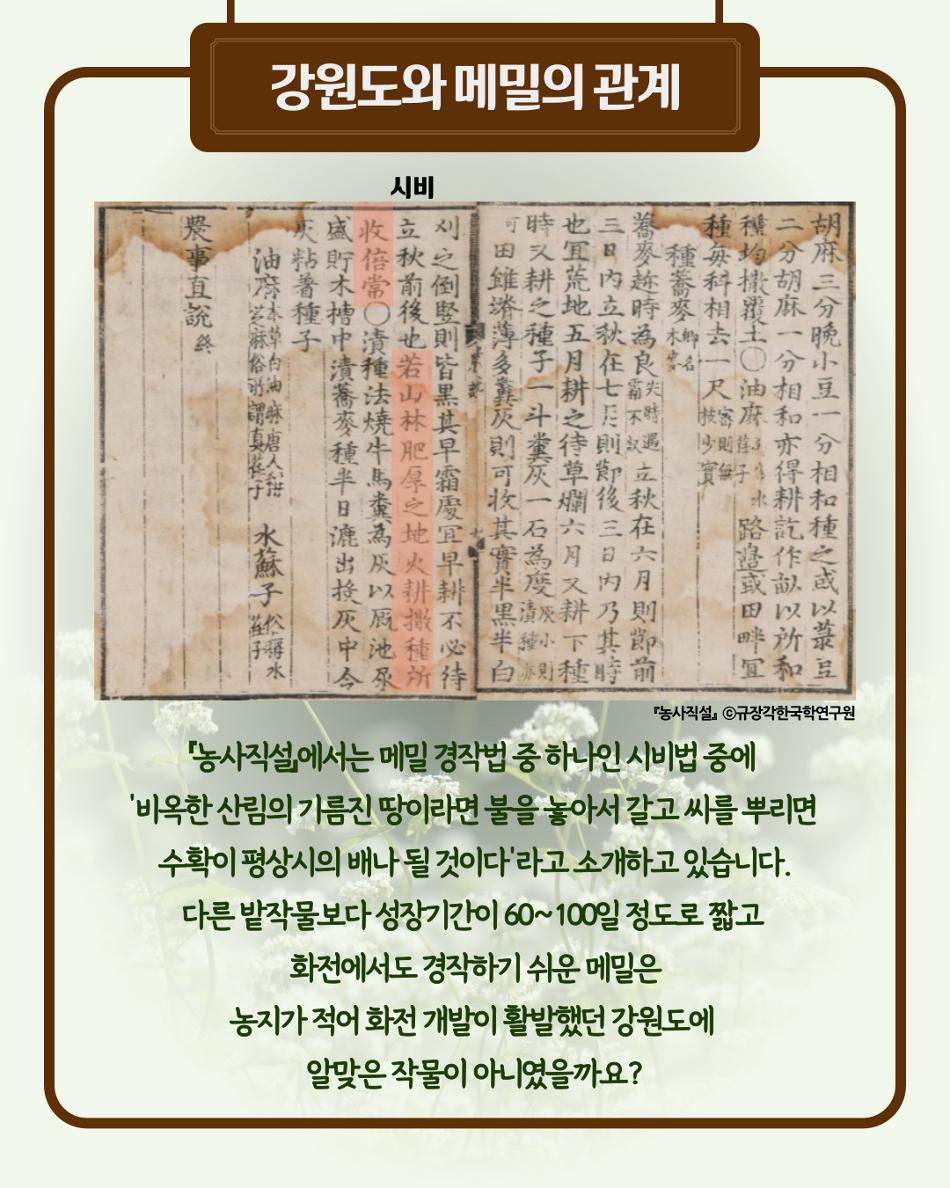 강원도와 메밀의 관계
시비
胡麻三分晩小豆一分相和種之或以菉豆
二分胡麻一分相和亦得耕訖作畝以所和
種均撒覆土〇油麻 路邊或田畔宜
種每科相去一尺 密則無 枝少實
種蕎麥 鄉名 木麥
蕎麥趂時為良 失時遇 霜不収 立秋在六月則節前
三日内立秋在七月則節後三日内乃其時
也宜荒地五月耕之待草爛六月又耕下種
時又耕之種子一斗糞灰一石為度 灰小則 漬種亦
可田雖塉薄多糞灰則可收其實半黑半白
刈之倒竪則皆黑其早霜處宜早耕不必待
立秋前後也若山林肥厚之地火耕撒種所
收倍常〇漬種法燒牛馬糞為灰以厩池尿
盛貯木槽中漬蕎麥種半日漉出投灰中令
灰粘着種子
油麻 本草白油麻唐人 俗所謂真荏子 水蘇子
農事直說 終
『농사직설』 ©규장각한국학연구원
『농사직설』에서는 메밀 경작법 중 하나인 시비법 중에
'비옥한 산림의 기름진 땅이라면 불을 놓아서 갈고 씨를 뿌리면
수확이 평상시의 배나 될 것이다'라고 소개하고 있습니다.
다른 밭작물보다 성장기간이 60~100일 정도로 짧고
화전에서도 경작하기 쉬운 메밀은
농지가 적어 화전 개발이 활발했던 강원도에
알맞은 작물이 아니였을까요?